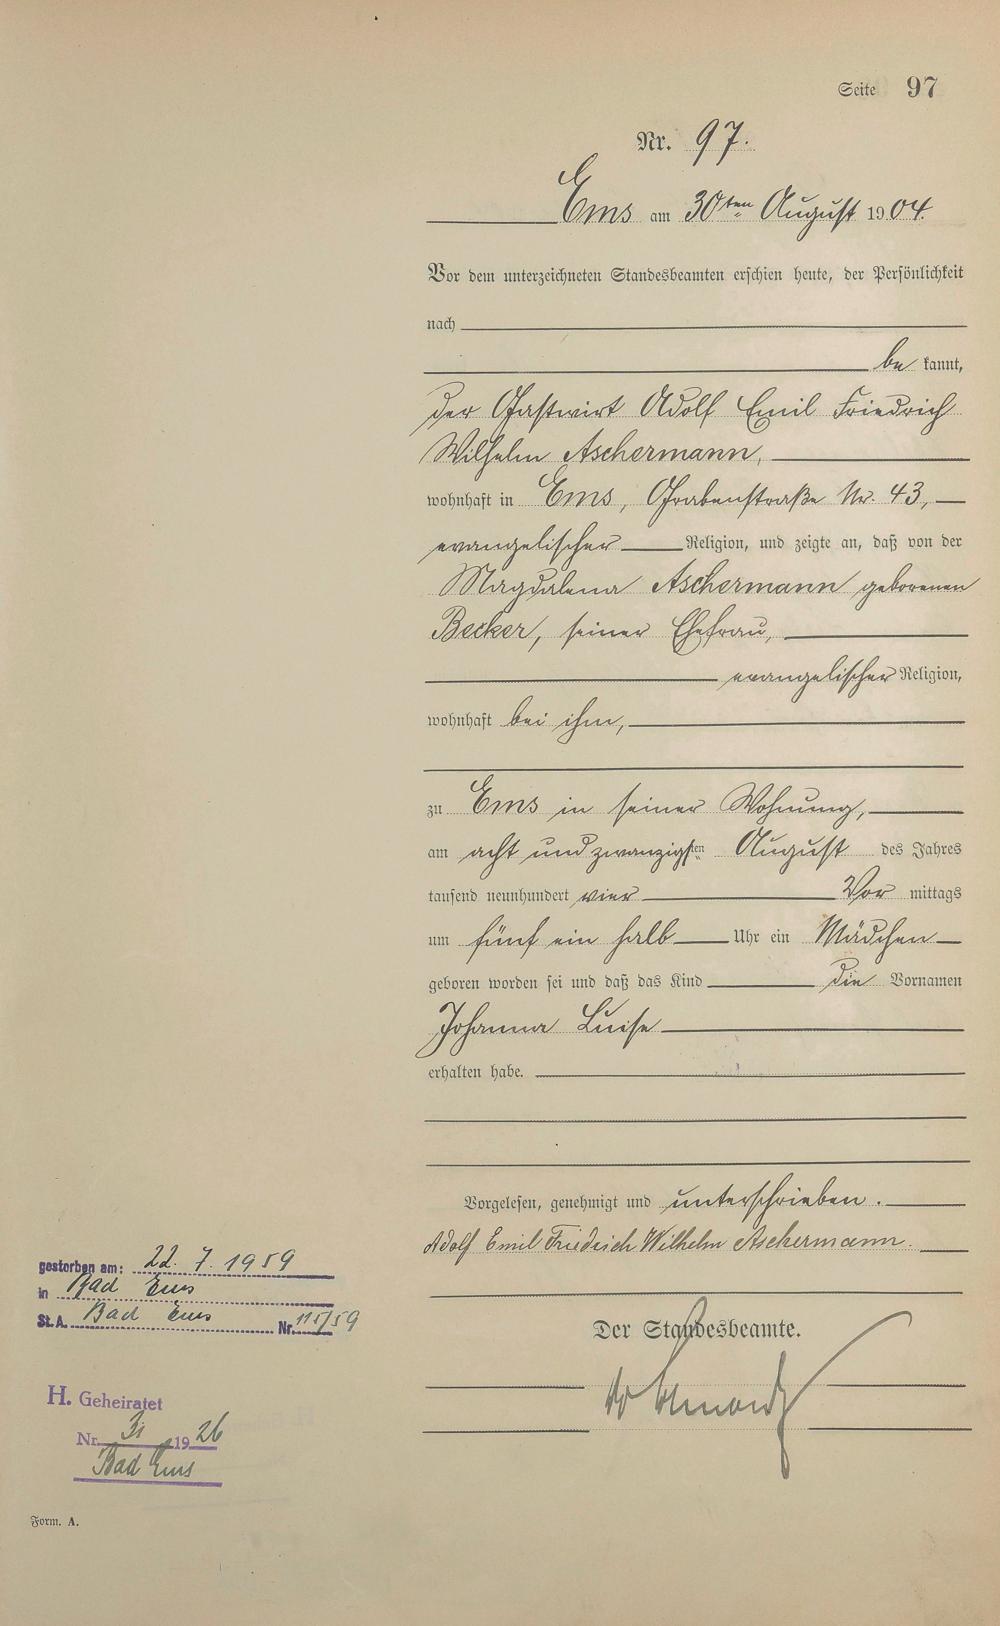 Seite 97
Nr. 97.
Ems am 30ten August 1904.
Vor dem unterzeichneten Standesbeamten erschien heute, der Persönlichkeit
nach
be kannt,
der Gastwirt Adolf Emil Friedrich
Wilhelm Aschermann,
wohnhaft in Ems, Grabenstraße Nr. 43,
evangelischer Religion, und zeigte an, daß von der
Magdalena Aschermann geborenen
Becker, seiner Ehefrau,
evangelischer Religion,
wohnhaft bei ihm,
zu Ems in seiner Wohnung,
am acht und zwanzigsten August des Jahres
tausend neunhundert vier Vor mittags
um fünf ein halb Uhr ein Mädchen
geboren worden sei und daß das Kind die Vornamen
Johanna Luise
erhalten habe.
Vorgelesen, genehmigt und unterschrieben.
Adolf Emil Friedrich Wilhelm Aschermann.
Der Standesbeamte.
gestorben am: 22. 7. 1959
in Bad Ems
St.A. Bad Ems Nr. 115/59
H. Geheiratet
Nr. 1926
Bad Ems
Form. A.